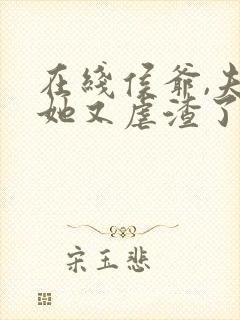 在线侯爷,夫
她又虐渣了
宋玉悲